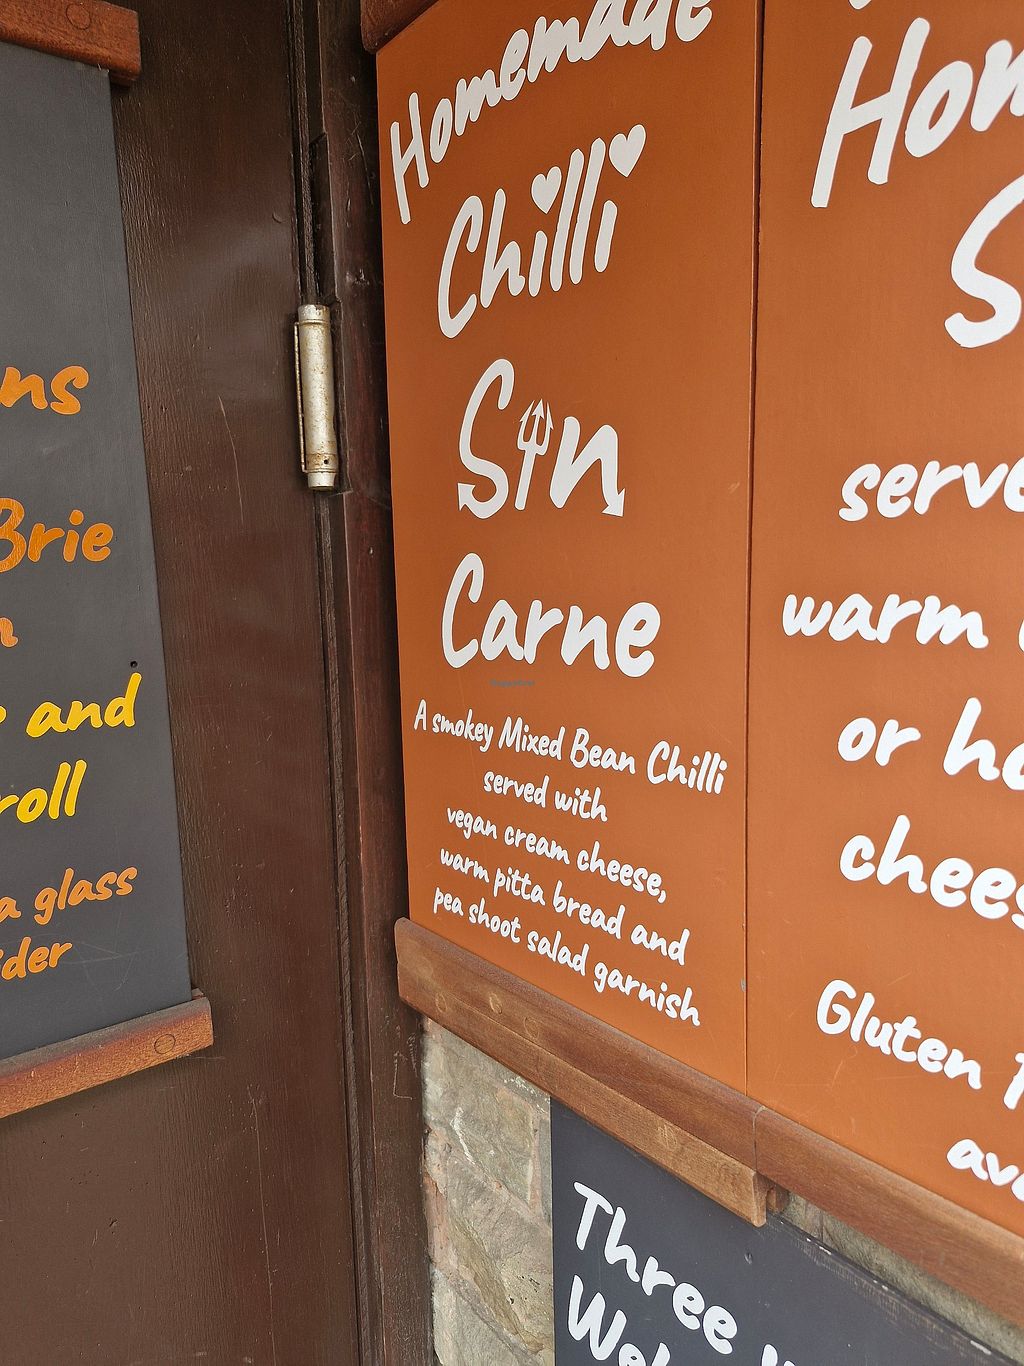 Brie
and
roll
a glass
Homemade
Chilli
Sin
Carne
A smokey Mixed Bean Chilli
served with
vegan cream cheese,
warm pitta bread and
pea shoot salad garnish
warm
or
Gluten
Three